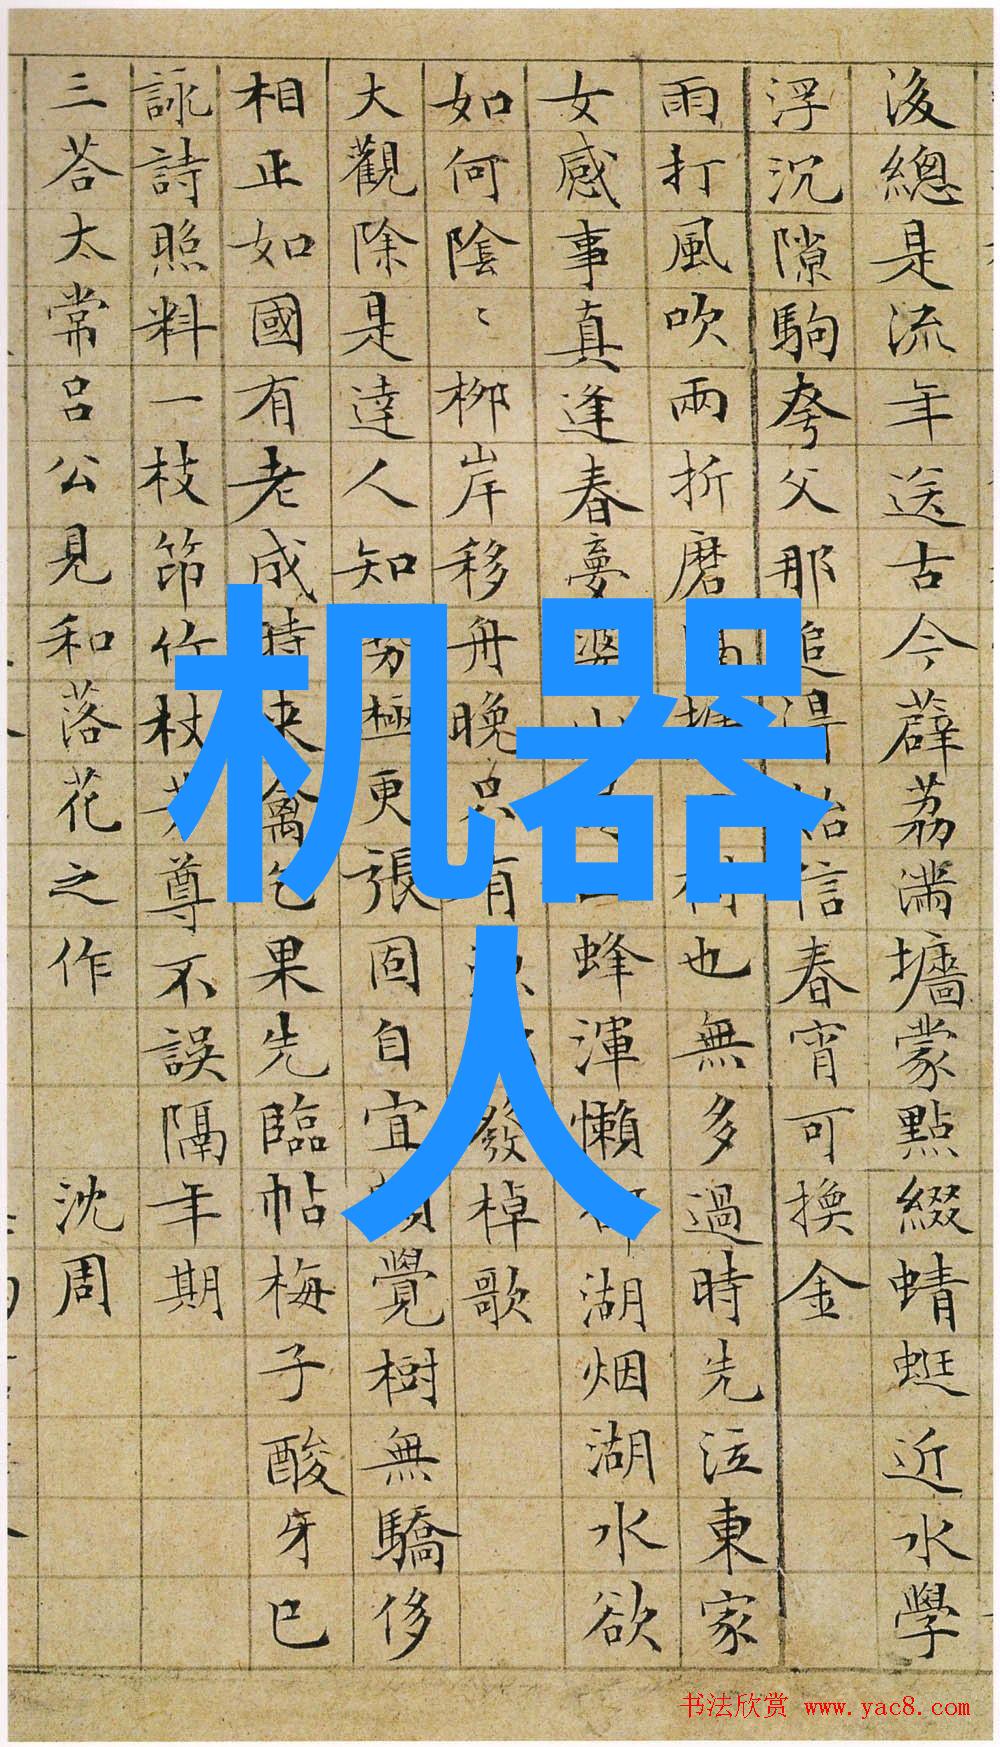 後總是流年送古今薜荔滿墻蒙點綴蜻蜓近水學
浮沉隙駒夸父那追得始信春宵可換金
雨打風吹兩折磨村也無多過時先泣東家
女感事真逢春夢婆山蜂渾懶都湖烟湖水欲
如何陰〻柳岸移舟晚只有發棹歌
大觀除是達人知勢極更張固自宜頓覺樹無驕侈
相正如國有老成時來禽乞果先臨帖梅子酸牙已
詠詩照料一枝笻竹杖芳尊不誤隔年期
三荅太常呂公見和落花之作 沈周
机器
人
书法欣赏 www.yac8.com